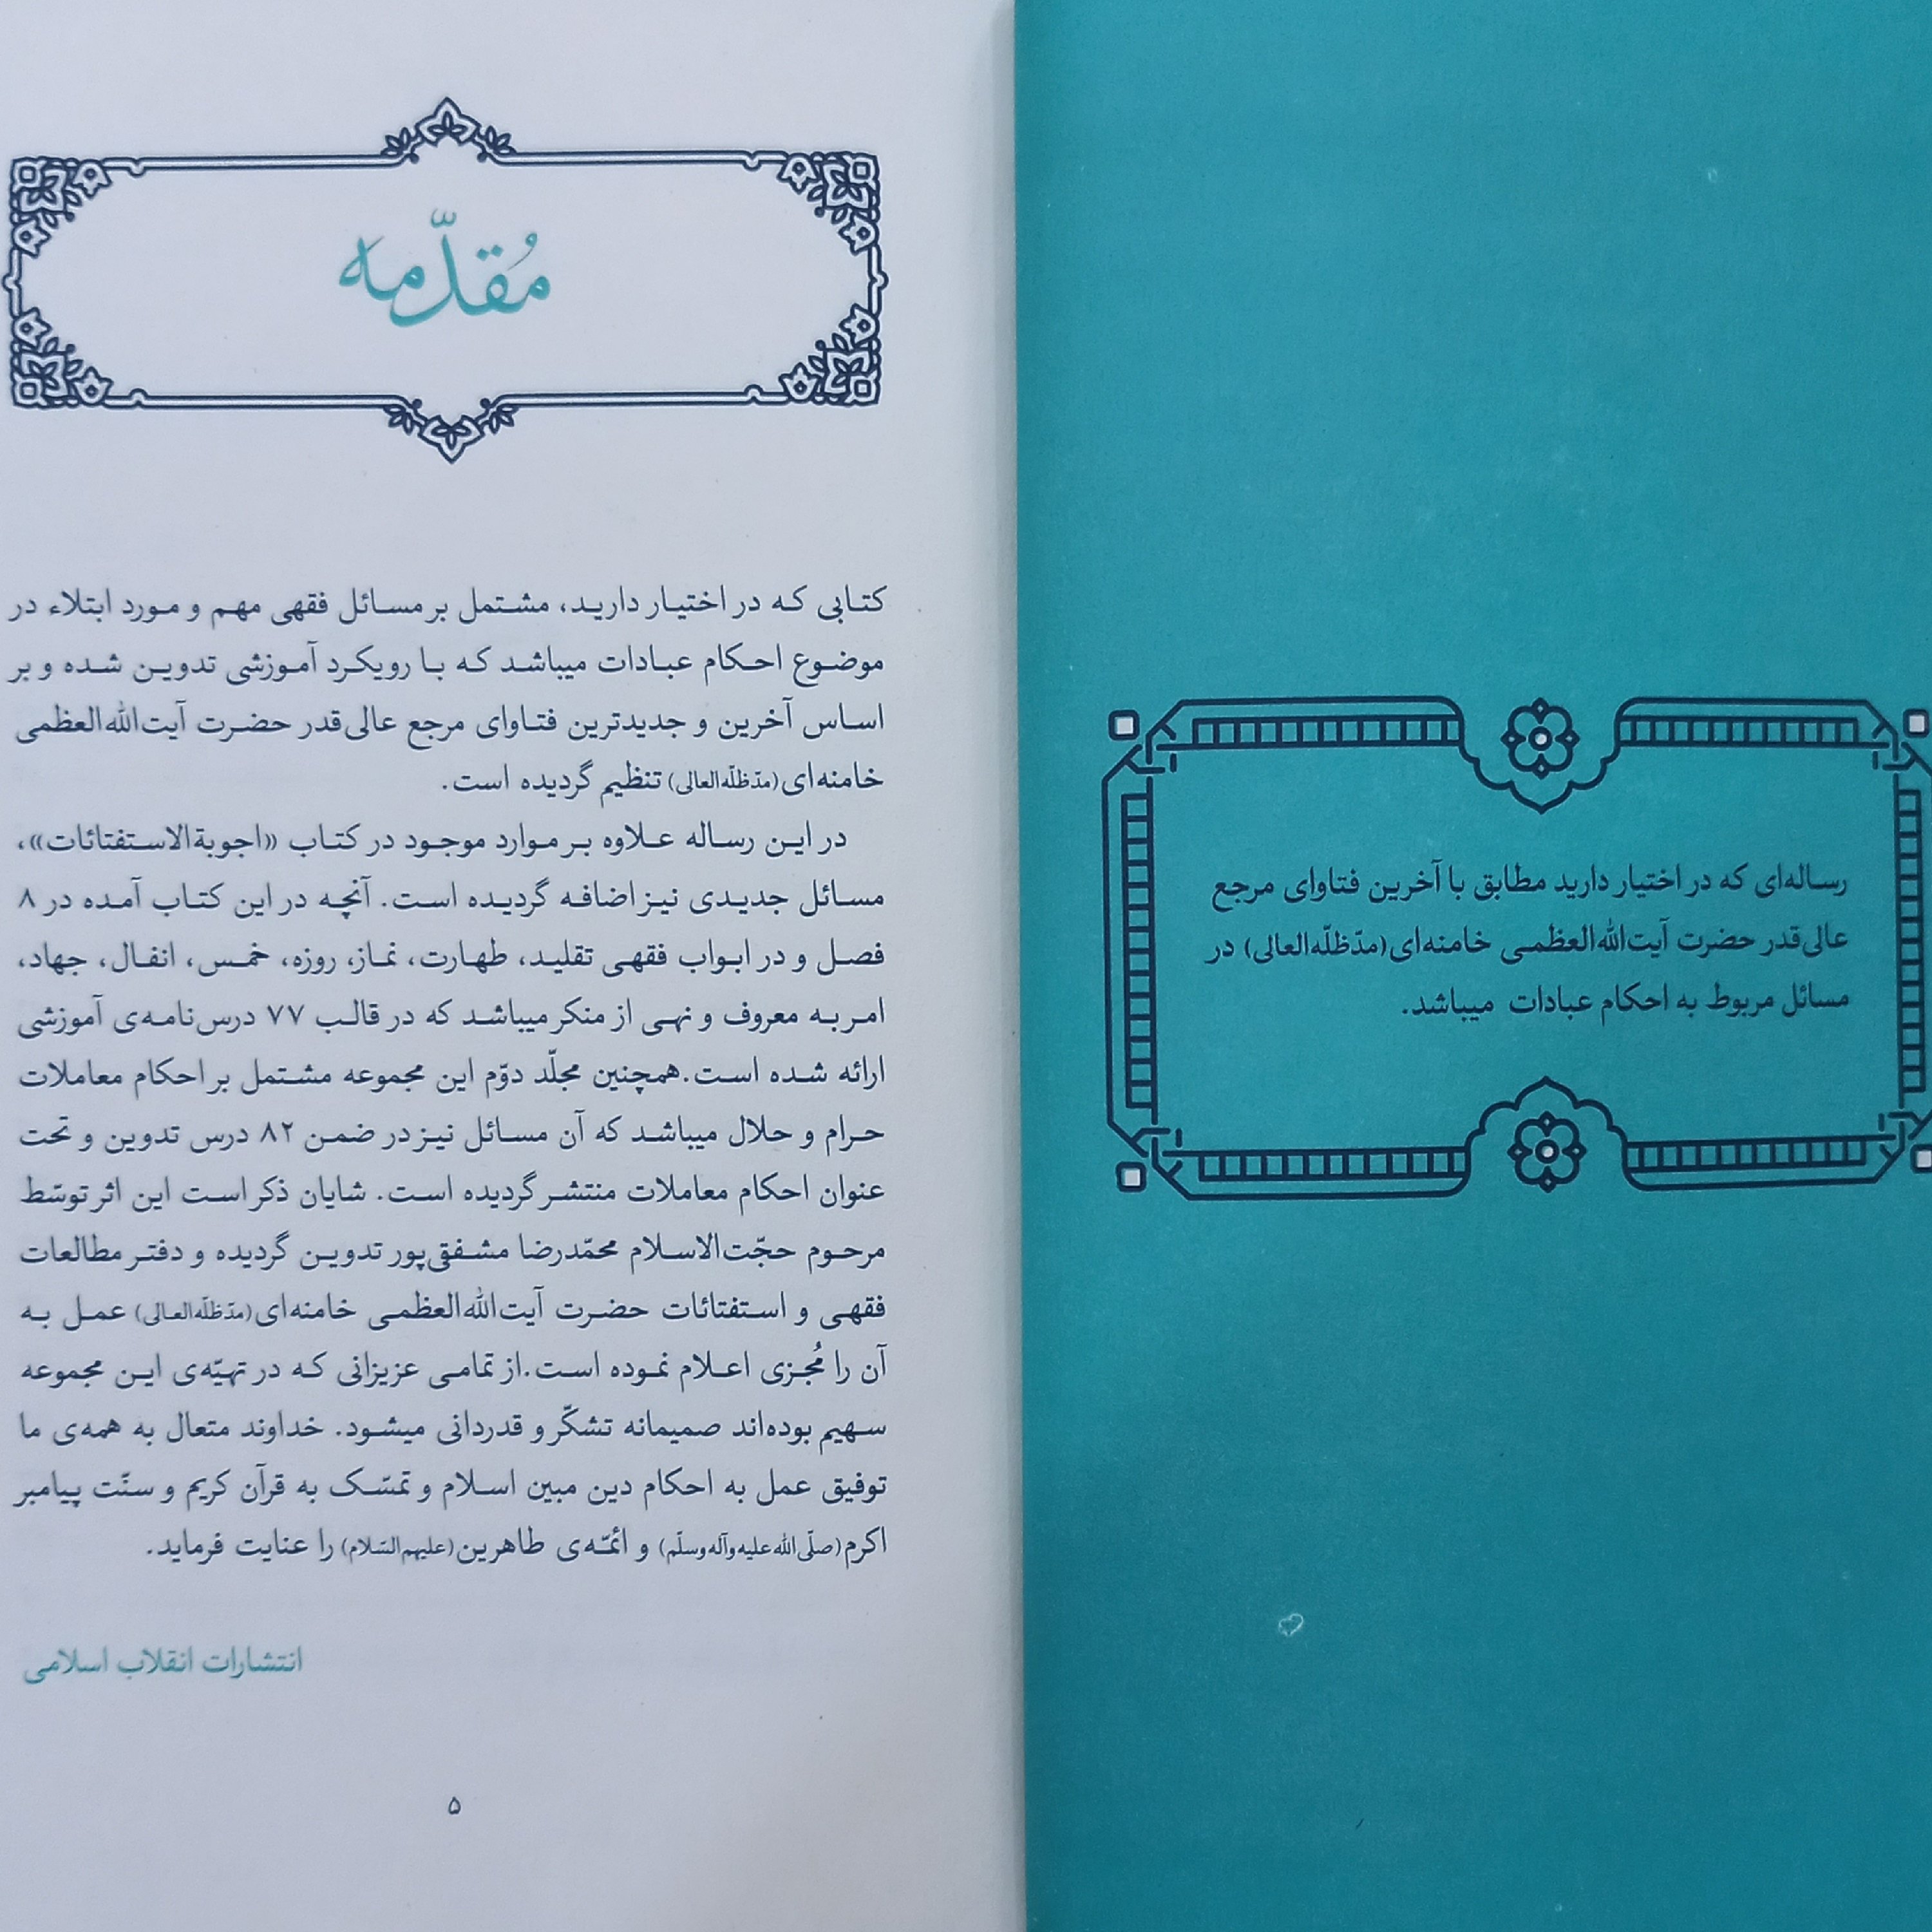 رساله‌ای که در اختیار دارید مطابق با آخرین فتاوای مرجع
عالی‌قدر حضرت آیت‌الله‌العظمی خامنه‌ای (مدّظلّه‌العالی) در
مسائل مربوط به احکام عبادات میباشد.
مُقدّمه
کتابی که در اختیار دارید، مشتمل بر مسائل فقهی مهم و مورد ابتلاء در
موضوع احکام عبادات میباشد که با رویکرد آموزشی تدوین شده و بر
اساس آخرین و جدیدترین فتاوای مرجع عالی‌قدر حضرت آیت‌الله‌العظمی
خامنه‌ای (مدّظلّه‌العالی) تنظیم گردیده است.
در این رساله علاوه بر موارد موجود در کتاب «اجوبةالاستفتائات»،
مسائل جدیدی نیز اضافه گردیده است. آنچه در این کتاب آمده در ۸
فصل و در ابواب فقهی تقلید، طهارت، نماز، روزه، خمس، انفال، جهاد،
امر به معروف و نهی از منکر میباشد که در قالب ۷۷ درس‌نامه‌ی آموزشی
ارائه شده است. همچنین مجلّد دوّم این مجموعه مشتمل بر احکام معاملات
حرام و حلال میباشد که آن مسائل نیز در ضمن ۸۲ درس تدوین و تحت
عنوان احکام معاملات منتشر گردیده است. شایان ذکر است این اثر توسّط
مرحوم حجّت‌الاسلام محمّدرضا مشفقی‌پور تدوین گردیده و دفتر مطالعات
فقهی و استفتائات حضرت آیت‌الله‌العظمی خامنه‌ای (مدّظلّه‌العالی) عمل به
آن را مُجزی اعلام نموده است. از تمامی عزیزانی که در تهیّه‌ی این مجموعه
سهیم بوده‌اند صمیمانه تشکّر و قدردانی میشود. خداوند متعال به همه‌ی ما
توفیق عمل به احکام دین مبین اسلام و تمسّک به قرآن کریم و سنّت پیامبر
اکرم (صلّی‌الله‌علیه‌وآله‌وسلّم) و ائمّه‌ی طاهرین (علیهم‌السّلام) را عنایت فرماید.
انتشارات انقلاب اسلامی
۵